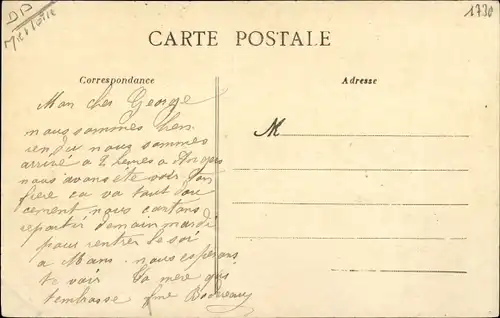 1730
CARTE POSTALE
Correspondance
Adresse
M
Mon cher George
nous sommes bien
rendu nous sommes
arrivé a 2 heures a
nous avons été voir ton
fiere ca va tout dou
cement nous contons
repartir demain mardi
pour rentrer le soir
a Mans nous esperons
te voir Ta mere qui
t'embrasse